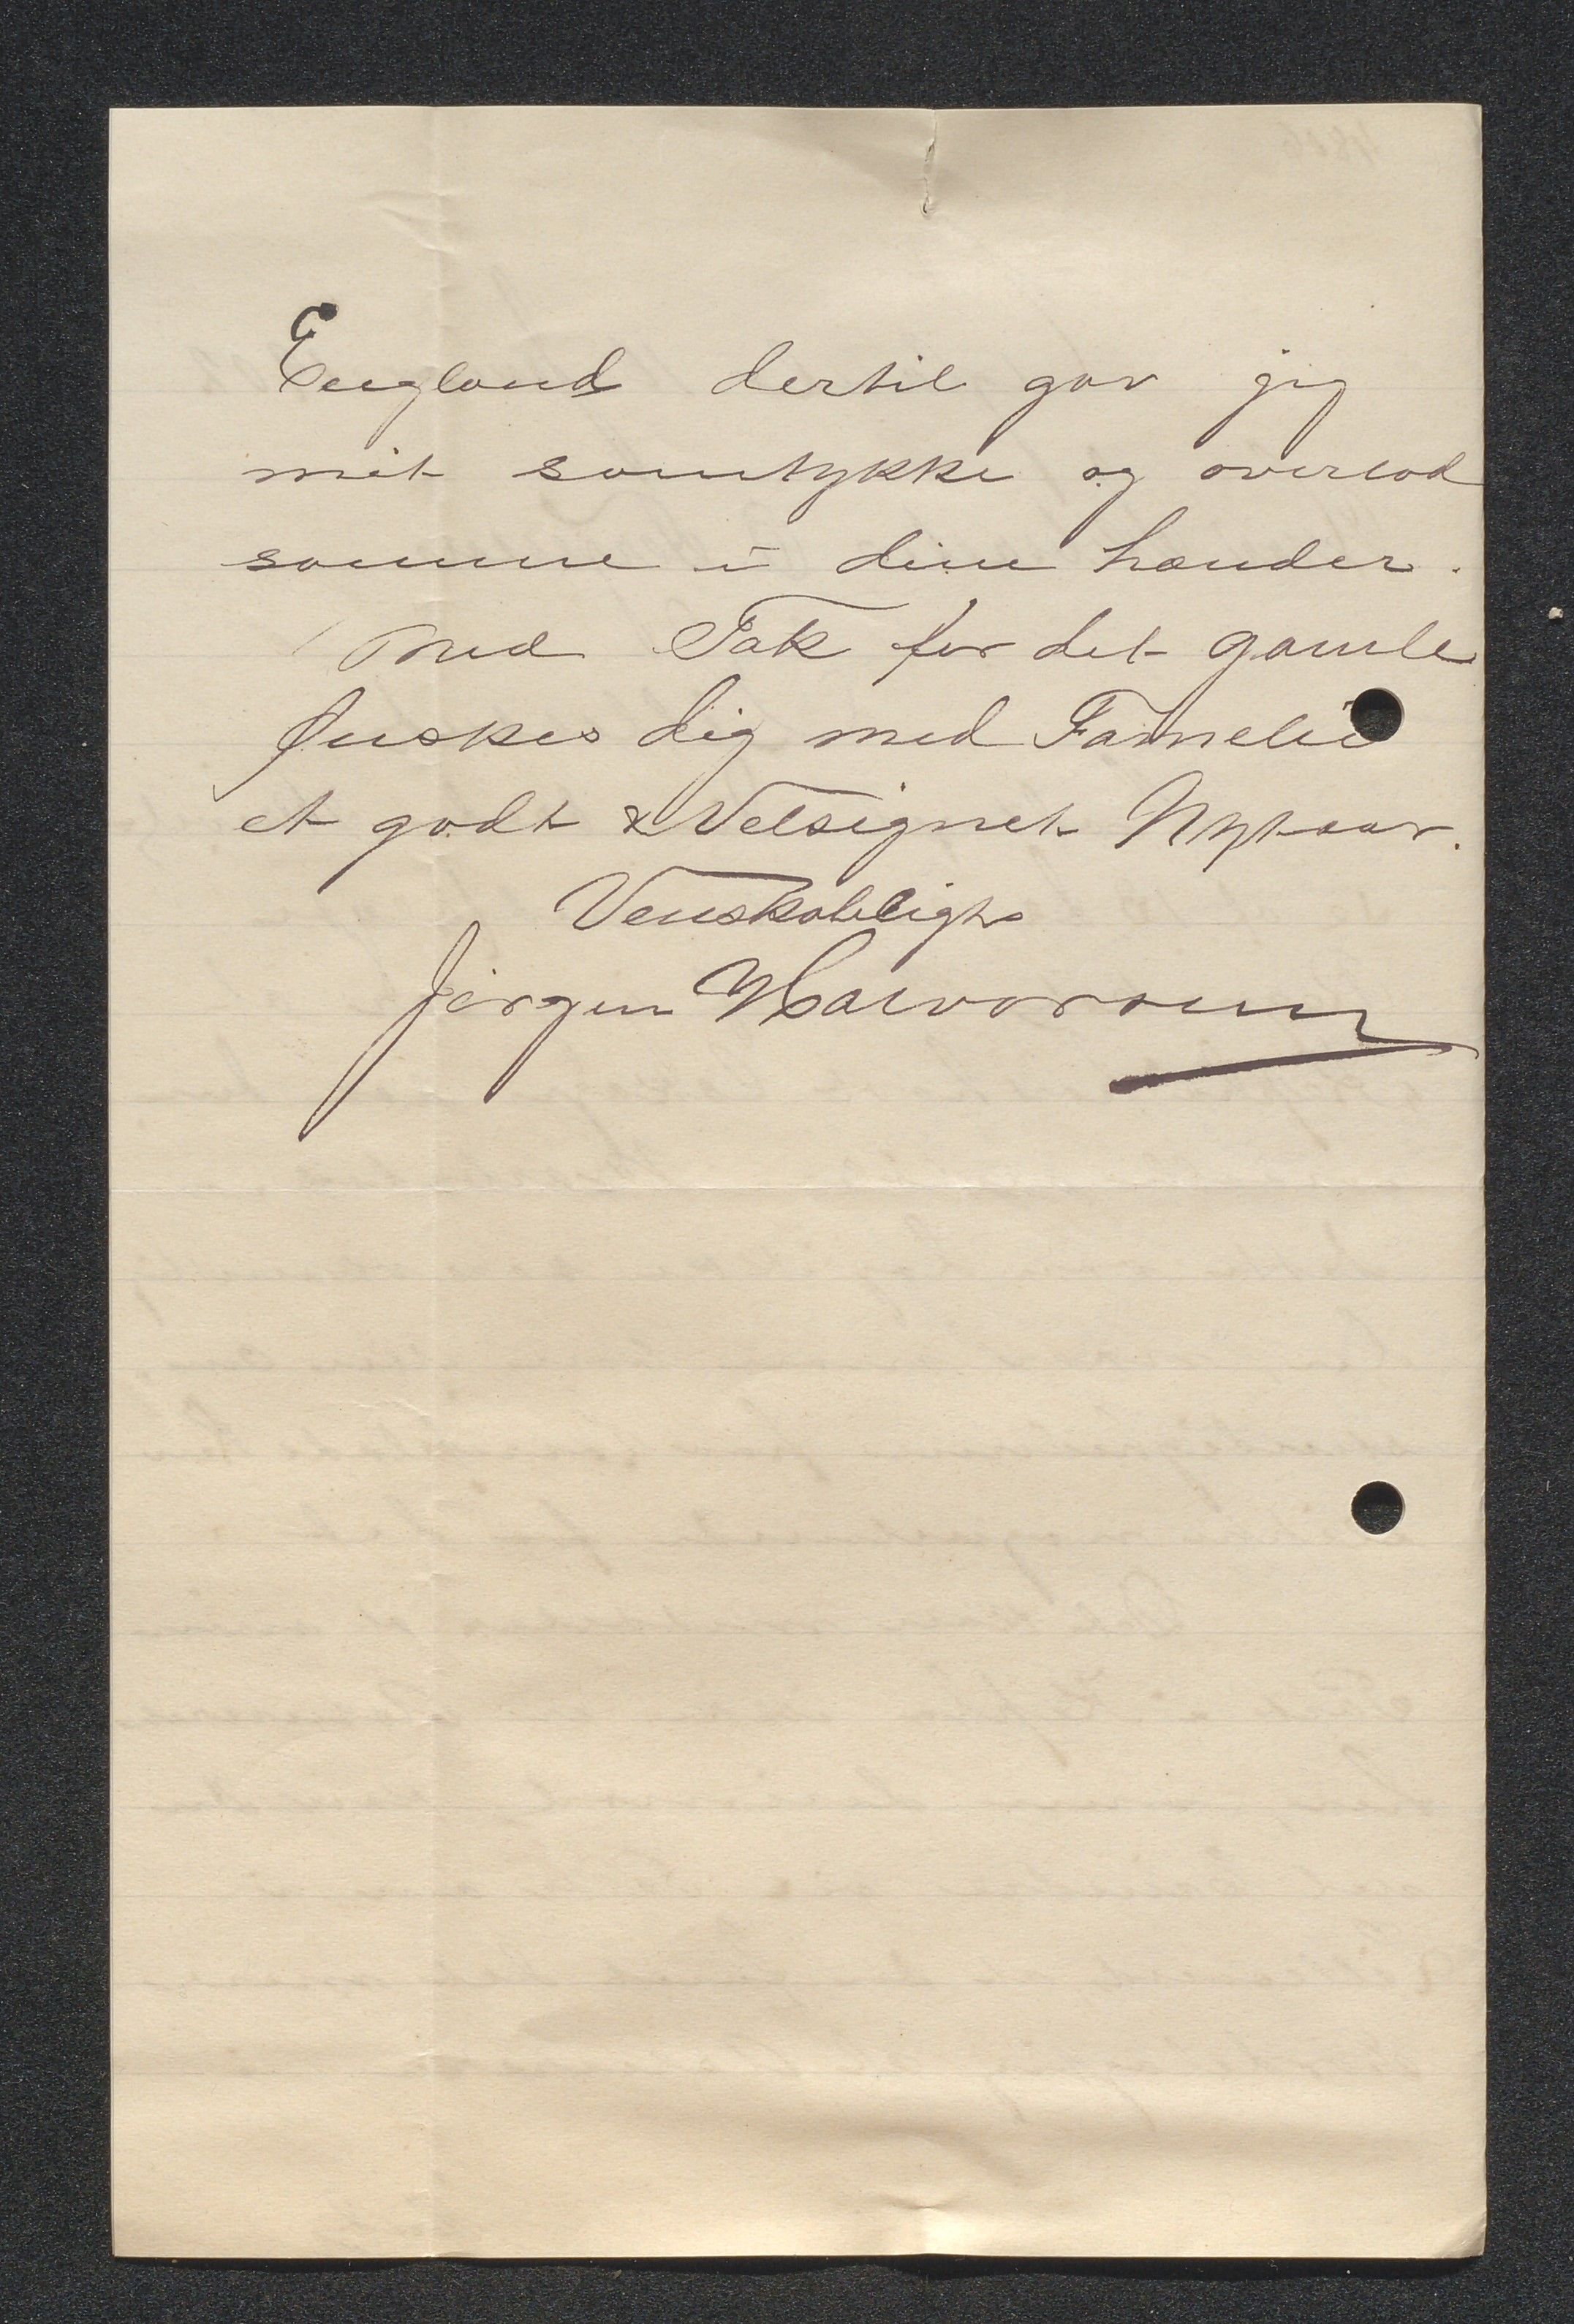 England dertil gav jeg
mit samtykke og overlod
samme i dine hænder.
Med Tak for det gamle
Ønskes dig med Familie
et godt & Velsignet Nytaar.
Venskabligts
Jørgen Halvorsen